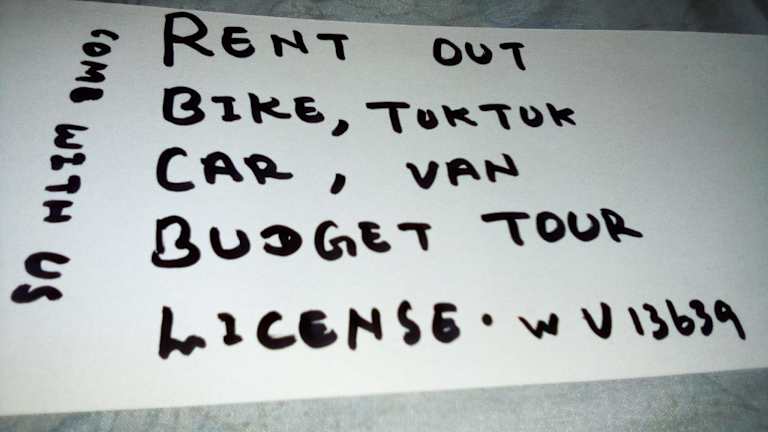 RENT OUT
BIKE, TUKTUK
CAR, VAN
BUDGET TOUR
LICENSE. WV13639
COME WITH US